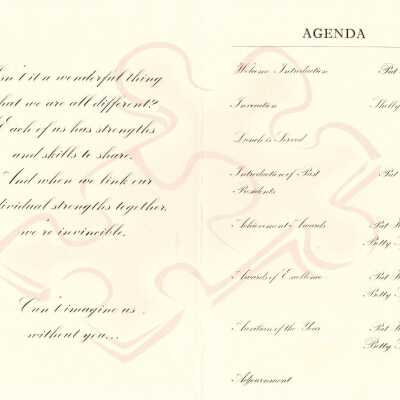 sn't it a wonderful thing
hat we are all different?
Each of us has strengths
and skills to share.
And when we link our
dividual strengths together,
we're invincible.
Can't imagine us
without you...
AGENDA
Welcome Introduction Pat
Invocation Shelly
Lunch is Served
Introduction of Past Pat
Presidents
Achievement Awards Pat
Betty
Awards of Excellence Pat
Betty
of the Year Pat
Betty
Adjournment